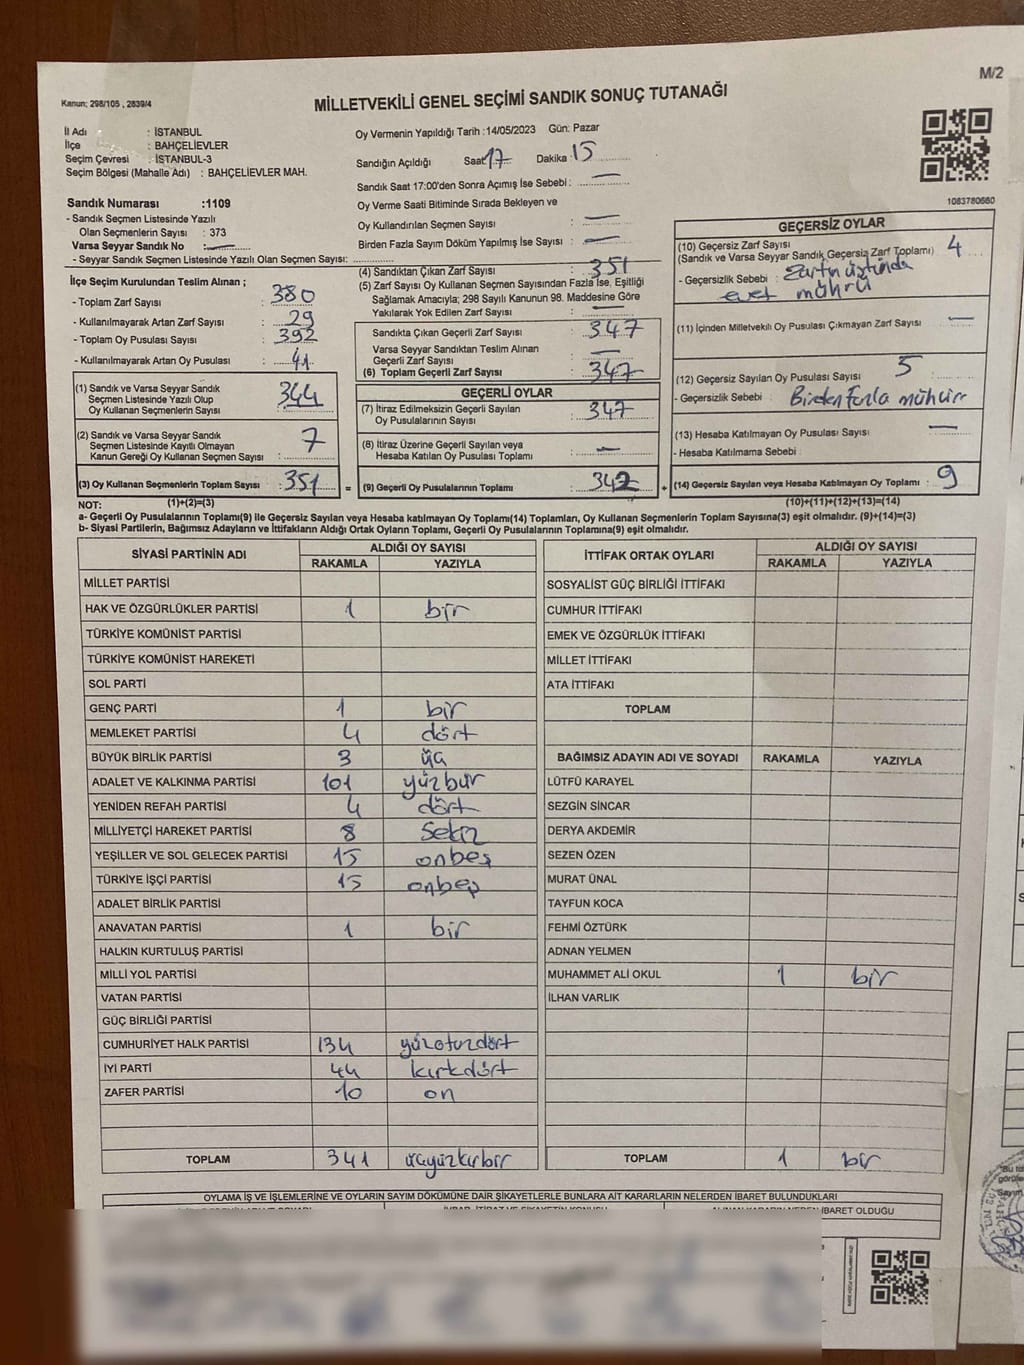 M/2
Kanun; 298/105 , 2839/4
MİLLETVEKİLİ GENEL SEÇİMİ SANDIK SONUÇ TUTANAĞI
İl Adı : İSTANBUL
İlçe : BAHÇELİEVLER
Seçim Çevresi : İSTANBUL-3
Seçim Bölgesi (Mahalle Adı) : BAHÇELİEVLER MAH.
Sandık Numarası :1109
- Sandık Seçmen Listesinde Yazılı
Olan Seçmenlerin Sayısı : 373
Varsa Seyyar Sandık No :
- Seyyar Sandık Seçmen Listesinde Yazılı Olan Seçmen Sayısı:
Oy Vermenin Yapıldığı Tarih :14/05/2023 Gün: Pazar
Sandığın Açıldığı Saat: 17 Dakika : 15
Sandık Saat 17:00'den Sonra Açmış İse Sebebi : —
Oy Verme Saati Bitiminde Sırada Bekleyen ve
Oy Kullandırılan Seçmen Sayısı : —
Birden Fazla Sayım Döküm Yapılmış İse Sayısı : —
1083780660
İlçe Seçim Kurulundan Teslim Alınan ;
- Toplam Zarf Sayısı : 380
- Kullanılmayarak Artan Zarf Sayısı : 29
- Toplam Oy Pusulası Sayısı : 392
- Kullanılmayarak Artan Oy Pusulası : 41
(1) Sandık ve Varsa Seyyar Sandık
Seçmen Listesinde Yazılı Olup
Oy Kullanan Seçmenlerin Sayısı : 344
(2) Sandık ve Varsa Seyyar Sandık
Seçmen Listesinde Kayıtlı Olmayan
Kanun Gereği Oy Kullanan Seçmen Sayısı : 7
(3) Oy Kullanan Seçmenlerin Toplam Sayısı : 351
(1)+(2)=(3)
(4) Sandıktan Çıkan Zarf Sayısı : 351
(5) Zarf Sayısı Oy Kullanan Seçmen Sayısından Fazla İse, Eşitliği
Sağlamak Amacıyla; 298 Sayılı Kanunun 98. Maddesine Göre
Yakılarak Yok Edilen Zarf Sayısı : —
Sandıkta Çıkan Geçerli Zarf Sayısı : 347
Varsa Seyyar Sandıktan Teslim Alınan
Geçerli Zarf Sayısı : —
(6) Toplam Geçerli Zarf Sayısı : 347
GEÇERLİ OYLAR
(7) İtiraz Edilmeksizin Geçerli Sayılan
Oy Pusulalarının Sayısı : 347
(8) İtiraz Üzerine Geçerli Sayılan veya
Hesaba Katılan Oy Pusulası Toplamı : —
= (9) Geçerli Oy Pusulalarının Toplamı : 342
GEÇERSİZ OYLAR
(10) Geçersiz Zarf Sayısı
(Sandık ve Varsa Seyyar Sandık Geçersiz Zarf Toplamı) : 4
- Geçersizlik Sebebi : Zarfın üstünde
evet mührü
(11) İçinden Milletvekili Oy Pusulası Çıkmayan Zarf Sayısı : —
(12) Geçersiz Sayılan Oy Pusulası Sayısı : 5
- Geçersizlik Sebebi : Birden fazla mühür
(13) Hesaba Katılmayan Oy Pusulası Sayısı : —
- Hesaba Katılmama Sebebi :
+ (14) Geçersiz Sayılan veya Hesaba Katılmayan Oy Toplamı : 9
(10)+(11)+(12)+(13)=(14)
NOT:
a- Geçerli Oy Pusulalarının Toplamı(9) ile Geçersiz Sayılan veya Hesaba katılmayan Oy Toplamı(14) Toplamları, Oy Kullanan Seçmenlerin Toplam Sayısına(3) eşit olmalıdır. (9)+(14)=(3)
b- Siyasi Partilerin, Bağımsız Adayların ve İttifakların Aldığı Ortak Oyların Toplamı, Geçerli Oy Pusulalarının Toplamına(9) eşit olmalıdır.
SİYASİ PARTİNİN ADI ALDIĞI OY SAYISI
RAKAMLA YAZIYLA
MİLLET PARTİSİ
HAK VE ÖZGÜRLÜKLER PARTİSİ 1 bir
TÜRKİYE KOMÜNİST PARTİSİ
TÜRKİYE KOMÜNİST HAREKETİ
SOL PARTİ
GENÇ PARTİ 1 bir
MEMLEKET PARTİSİ 4 dört
BÜYÜK BİRLİK PARTİSİ 3 üç
ADALET VE KALKINMA PARTİSİ 101 yüzbir
YENİDEN REFAH PARTİSİ 4 dört
MİLLİYETÇİ HAREKET PARTİSİ 8 sekiz
YEŞİLLER VE SOL GELECEK PARTİSİ 15 onbeş
TÜRKİYE İŞÇİ PARTİSİ 15 onbeş
ADALET BİRLİK PARTİSİ
ANAVATAN PARTİSİ 1 bir
HALKIN KURTULUŞ PARTİSİ
MİLLİ YOL PARTİSİ
VATAN PARTİSİ
GÜÇ BİRLİĞİ PARTİSİ
CUMHURİYET HALK PARTİSİ 134 yüzotuzdört
İYİ PARTİ 44 kırkdört
ZAFER PARTİSİ 10 on
TOPLAM 341 üçyüzkırbir
İTTİFAK ORTAK OYLARI ALDIĞI OY SAYISI
RAKAMLA YAZIYLA
SOSYALİST GÜÇ BİRLİĞİ İTTİFAKI
CUMHUR İTTİFAKI
EMEK VE ÖZGÜRLÜK İTTİFAKI
MİLLET İTTİFAKI
ATA İTTİFAKI
TOPLAM
BAĞIMSIZ ADAYIN ADI VE SOYADI RAKAMLA YAZIYLA
LÜTFÜ KARAYEL
SEZGİN SİNCAR
DERYA AKDEMİR
SEZEN ÖZEN
MURAT ÜNAL
TAYFUN KOCA
FEHMİ ÖZTÜRK
ADNAN YELMEN
MUHAMMET ALİ OKUL 1 bir
İLHAN VARLIK
TOPLAM 1 bir
OYLAMA İŞ VE İŞLEMLERİNE VE OYLARIN SAYIM DÖKÜMÜNE DAİR ŞİKAYETLERLE BUNLARA AİT KARARLARIN NELERDEN İBARET BULUNDUKLARI
İBARET OLDUĞU